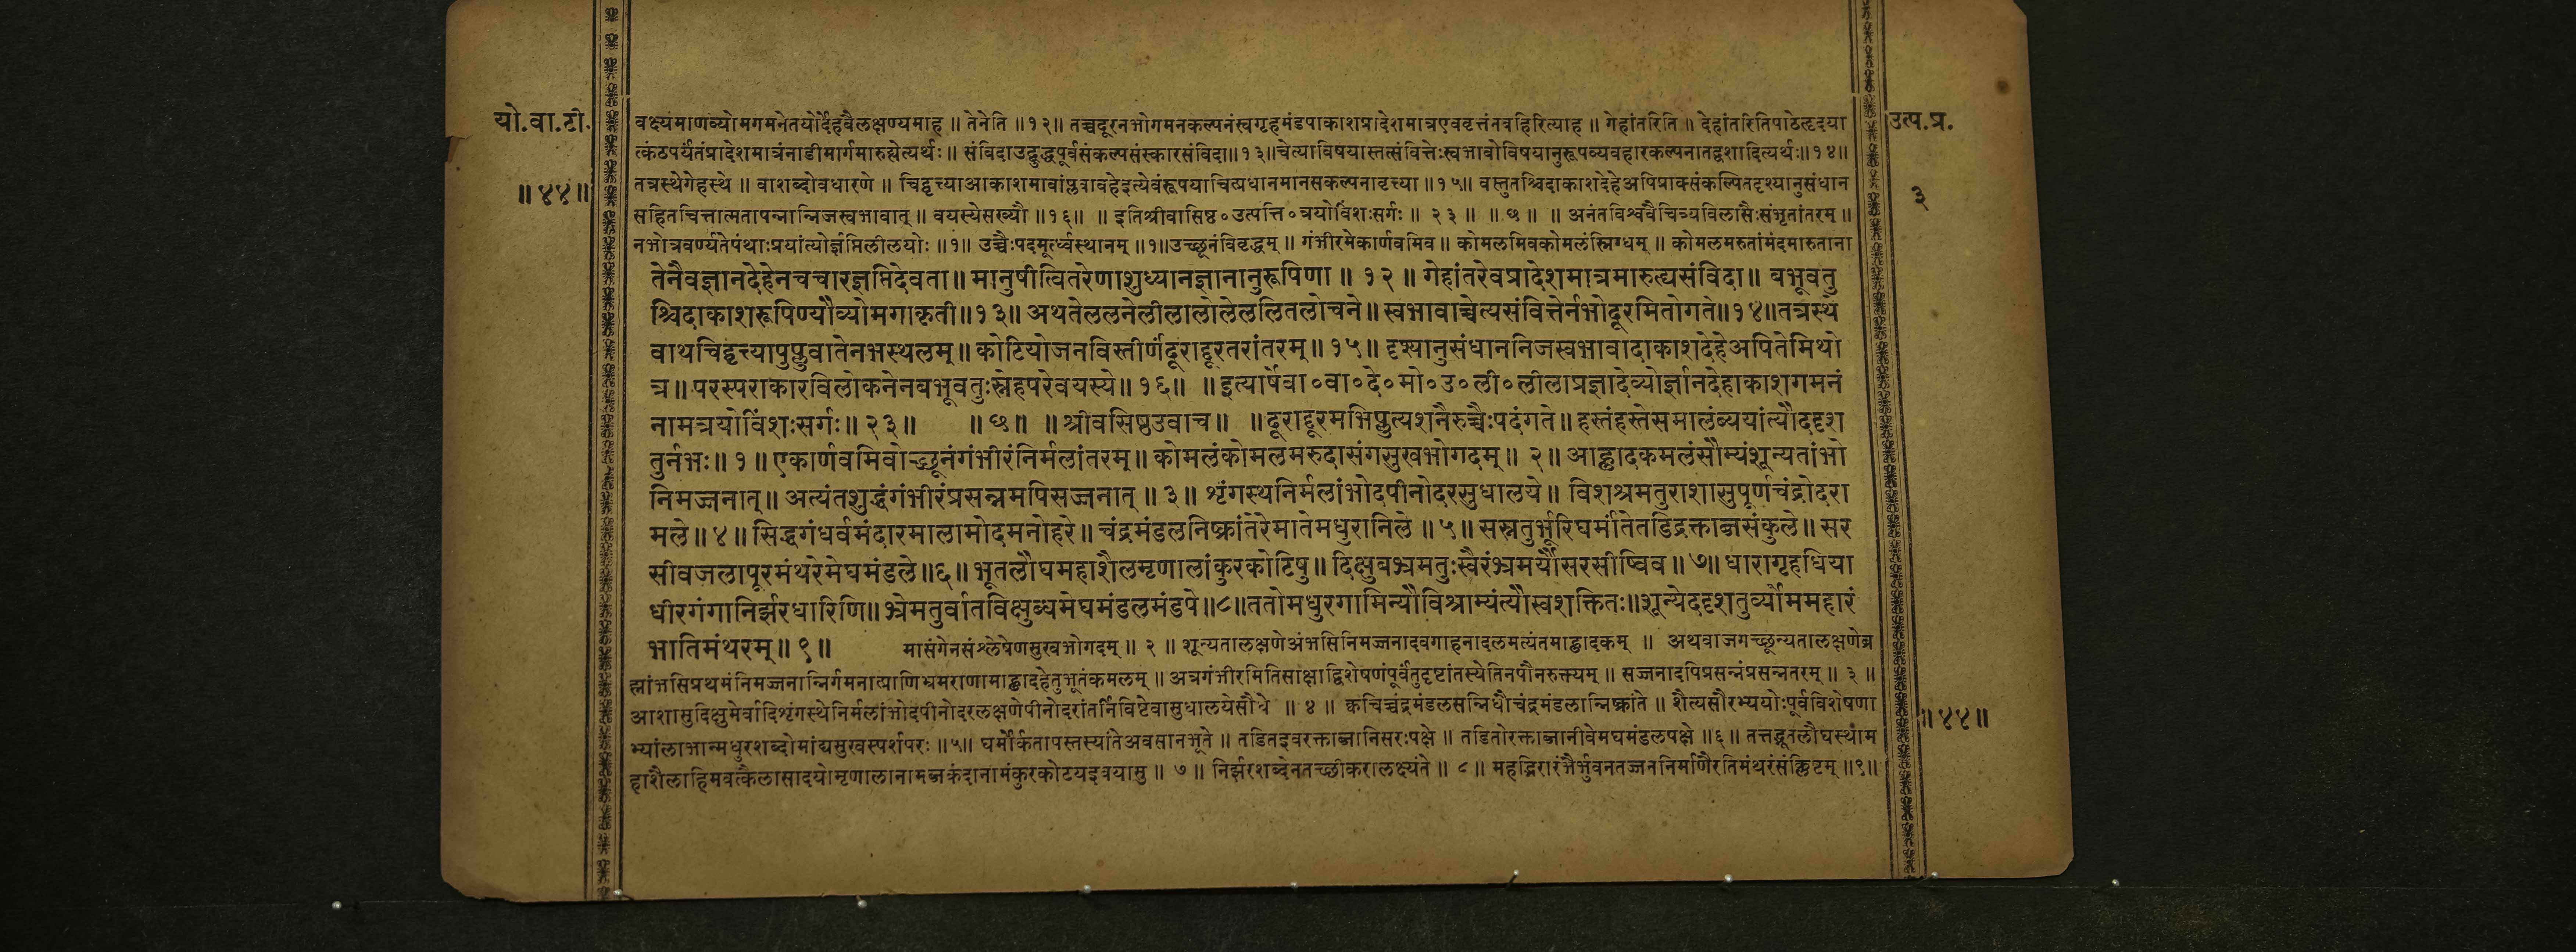 यो.वा.टी.
॥४४॥
वक्ष्यंमाणव्योमगमनेतयोर्देहवैलक्षण्यमाह ॥ तेनेति ॥१२॥ तच्चदूरनभोगमनकल्पनंस्वगृहमंडपाकाशप्रादेशमात्रएववृत्तंनबहिरित्याह ॥ गेहांतरिति ॥ देहांतरितिपाठेत्हृदया
त्कंठपर्यंतंप्रादेशमात्रंनाडीमार्गमारुह्येत्यर्थः ॥ संविदाउद्बुद्धपूर्वसंकल्पसंस्कारसंविदा॥१३॥चेत्याविषयास्तत्संवित्तेःस्वभावोविषयानुरूपव्यवहारकल्पनातद्वशादित्यर्थः॥१४॥
तत्रस्थेगेहस्थे ॥ वाशब्दोवधारणे ॥ चिद्वृत्त्याआकाशमावांप्लवावहेइत्येवंरूपयाचित्प्रधानमानसकल्पनावृत्त्या ॥१५॥ वस्तुतश्चिदाकाशदेहेअपिप्राक्संकल्पितदृश्यानुसंधान
सहितचित्तात्मतापन्नान्निजस्वभावात् ॥ वयस्येसख्यौ ॥१६॥ ॥ इतिश्रीवासिष्ठ० उत्पत्ति० त्रयोविंशःसर्गः ॥ २३ ॥ ॥ छ ॥ ॥ अनंतविश्ववैचित्र्यविलासैःसंभृतांतरम् ॥
नभोत्रवर्ण्यतेपंथाःप्रयांत्योर्ज्ञप्तिलीलयोः ॥१॥ उच्चैःपदमूर्त्ध्वस्थानम् ॥१॥उच्छूनंविवृद्धम् ॥ गंभीरमेकार्णवमिव ॥ कोमलमिवकोमलंस्निग्धम् ॥ कोमलमरुतांमंदमारुताना
तेनैवज्ञानदेहेनचचारज्ञप्तिदेवता॥ मानुषीत्वितरेणाशुध्यानज्ञानानुरूपिणा ॥ १२ ॥ गेहांतरेवप्रादेशमात्रमारुत्ह्यसंविदा॥ बभूवतु
श्चिदाकाशरूपिण्यौव्योमगाकृती॥१३॥ अथतेललनेलीलालोलेललितलोचने॥ स्वभावाच्चेत्यसंवित्तेर्नभोदूरमितोगते॥१४॥तत्रस्थे
वाथचिद्वृत्त्यापुप्लुवातेनभस्थलम्॥कोटियोजनविस्तीर्णंदूराद्दूरतरांतरम्॥१५॥ दृश्यानुसंधाननिजस्वभावादाकाशदेहेअपितेमिथो
त्र॥ परस्पराकारविलोकनेनबभूवतुःस्नेहपरेवयस्ये॥ १६॥ ॥ इत्यार्षेवा०वा०दे०मो०उ०ली०लीलाप्रज्ञादेव्योर्ज्ञानदेहाकाशगमनं
नामत्रयोविंशःसर्गः॥ २३॥ ॥ छ॥ ॥ श्रीवसिष्ठउवाच॥ ॥दूराद्दूरमभिप्लुत्यशनैरुच्चैःपदंगते॥ हस्तंहस्तेसमालंब्ययांत्यौददृश
तुर्नभः॥ १॥ एकार्णवमिवोच्छूनंगंभीरंनिर्मलांतरम्॥ कोमलंकोमलमरुदासंगसुखभोगदम्॥ २॥ आह्लादकमलंसौम्यंशून्यतांभो
निमज्जनात्॥ अत्यंतशुद्धंगंभीरंप्रसन्नमपिसज्जनात् ॥ ३॥ शृंगस्थनिर्मलांभोदपीनोदरसुधालये॥ विशश्रमतुराशासुपूर्णचंद्रोदरा
मले॥४॥ सिद्धगंधर्वमंदारमालामोदमनोहरे॥ चंद्रमंडलनिष्क्रांतेरेमातेमधुरानिले ॥५॥ सस्नतुर्भूरिघर्मांतेतडिद्रक्ताब्जसंकुले॥ सर
सीवजलापूरमंथरेमेघमंडले॥६॥ भूतलौघमहाशैलमृणालांकुरकोटिषु॥ दिक्षुबभ्रमतुःस्वैरंभ्रमर्यौसरसीष्विव॥ ७॥ धारागृहधिया
धीरगंगानिर्झरधारिणि॥ भ्रेमतुर्वातविक्षुब्धमेघमंडलमंडपे॥८॥ततोमधुरगामिन्यौविश्राम्यंत्यौस्वशक्तितः॥शून्येददृशतुर्व्योममहारं
भातिमंथरम्॥ ९॥ मासंगेनसंश्लेषेणसुखभोगदम् ॥ २ ॥ शून्यतालक्षणेअंभसिनिमज्जनादवगाहनादलमत्यंतमाह्लादकम् ॥ अथवाजगच्छून्यतालक्षणेब्र
ह्मांभसिप्रथमंनिमज्जनान्निर्गमनात्प्राणिभ्रमराणामाह्लादहेतुभूतंकमलम् ॥ अत्रगंभीरमितिसाक्षाद्विशेषणंपूर्वंतुदृष्टांतस्येतिनपौनरुक्त्यम् ॥ सज्जनादपिप्रसन्नंप्रसन्नतरम् ॥ ३ ॥
आशासुदिक्षुमेर्वादिशृंगस्थेनिर्मलांभोदपीनोदरलक्षणेपीनोदरांतर्निविष्टेवासुधालयेसौधे ॥ ४ ॥ क्वचिच्चंद्रमंडलसन्निधौचंद्रमंडलान्निष्क्रांते ॥ शैत्यसौरभ्ययोःपूर्वविशेषणा
भ्यांलाभान्मधुरशब्दोमांद्यसुखस्पर्शपरः ॥५॥ घर्मोर्कतापस्तस्यांतेअवसानभूते ॥ तडितइवरक्ताब्जानिसरःपक्षे ॥ तडितोरक्ताब्जानीवेमघमंडलपक्षे ॥६॥ तत्तद्भूतलौघस्थाम
हाशैलाहिमवत्कैलासादयोमृणालानामब्जकंदानामंकुरकोटयइवयासु ॥ ७ ॥ निर्झरशब्देनतच्छीकरालक्ष्यंते ॥ ८ ॥ महद्भिरारंभैर्भुवनतज्जननिर्माणैरतिमंथरंसंक्लिष्टम् ॥९॥
उत्प.प्र.
३
॥४४॥